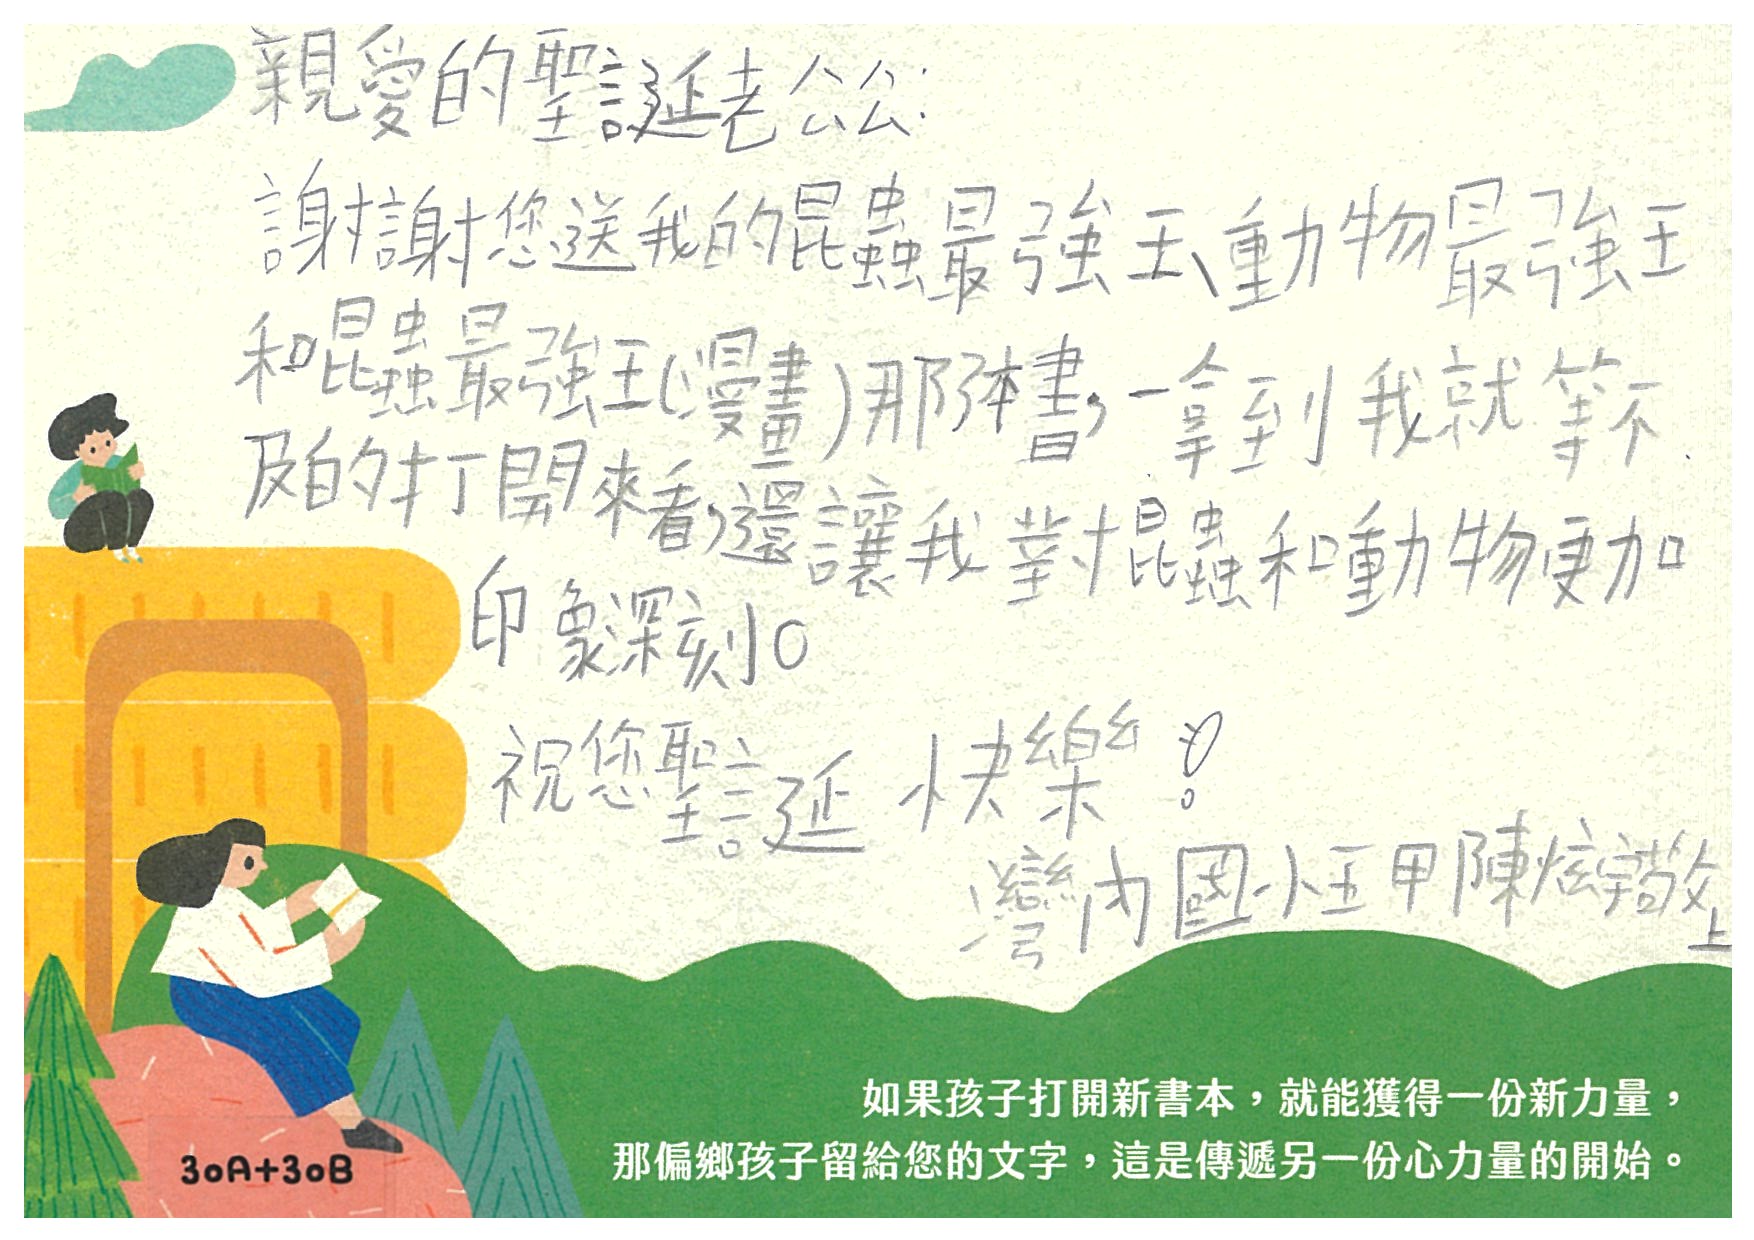 親愛的聖誕老公公:
謝謝您送我的昆蟲最強王、動物最強王
和昆蟲最強王(漫畫)那3本書,一拿到我就等不
及的打開來看,還讓我對昆蟲和動物更加
印象深刻。
祝您聖誕快樂!
灣內國小五甲陳炫宇敬上
如果孩子打開新書本,就能獲得一份新力量,
那偏鄉孩子留給您的文字,這是傳遞另一份心力量的開始。
30A+30B